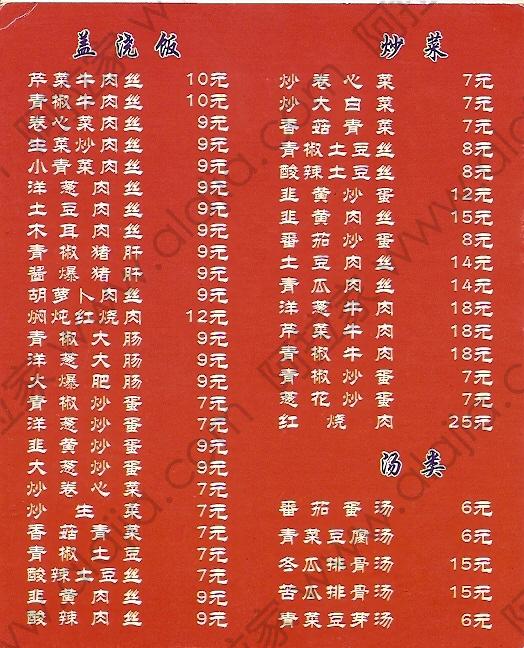 盖浇饭
芹菜牛肉丝 10元
青椒牛肉丝 10元
卷心菜肉丝 9元
生菜炒肉丝 9元
小青菜肉丝 9元
洋葱肉丝 9元
土豆肉丝 9元
木耳肉丝 9元
青椒猪肝 9元
酱爆猪肝 9元
胡萝卜肉丝 9元
焖炖红烧肉 12元
青椒大肠 9元
洋葱大肠 9元
火爆肥肠 9元
青椒炒蛋 7元
洋葱炒蛋 7元
韭黄炒蛋 9元
大葱炒蛋 9元
炒卷心菜 7元
炒生菜 7元
香菇青菜 7元
青椒土豆 7元
酸辣土豆丝 7元
韭黄肉丝 9元
酸辣肉丝 9元
炒菜
炒卷心菜 7元
炒大白菜 7元
香菇青菜 7元
青椒土豆丝 8元
酸辣土豆丝 8元
韭黄炒蛋 12元
韭黄肉丝 15元
番茄炒蛋 8元
土豆肉丝 14元
青瓜肉丝 14元
洋葱牛肉 18元
芹菜牛肉 18元
青椒牛肉 18元
青椒炒蛋 7元
葱花炒蛋 7元
红烧肉 25元
汤类
番茄蛋汤 6元
青菜豆腐汤 6元
冬瓜排骨汤 15元
苦瓜排骨汤 15元
青菜豆芽汤 6元
阿拉家 www.alajia.com